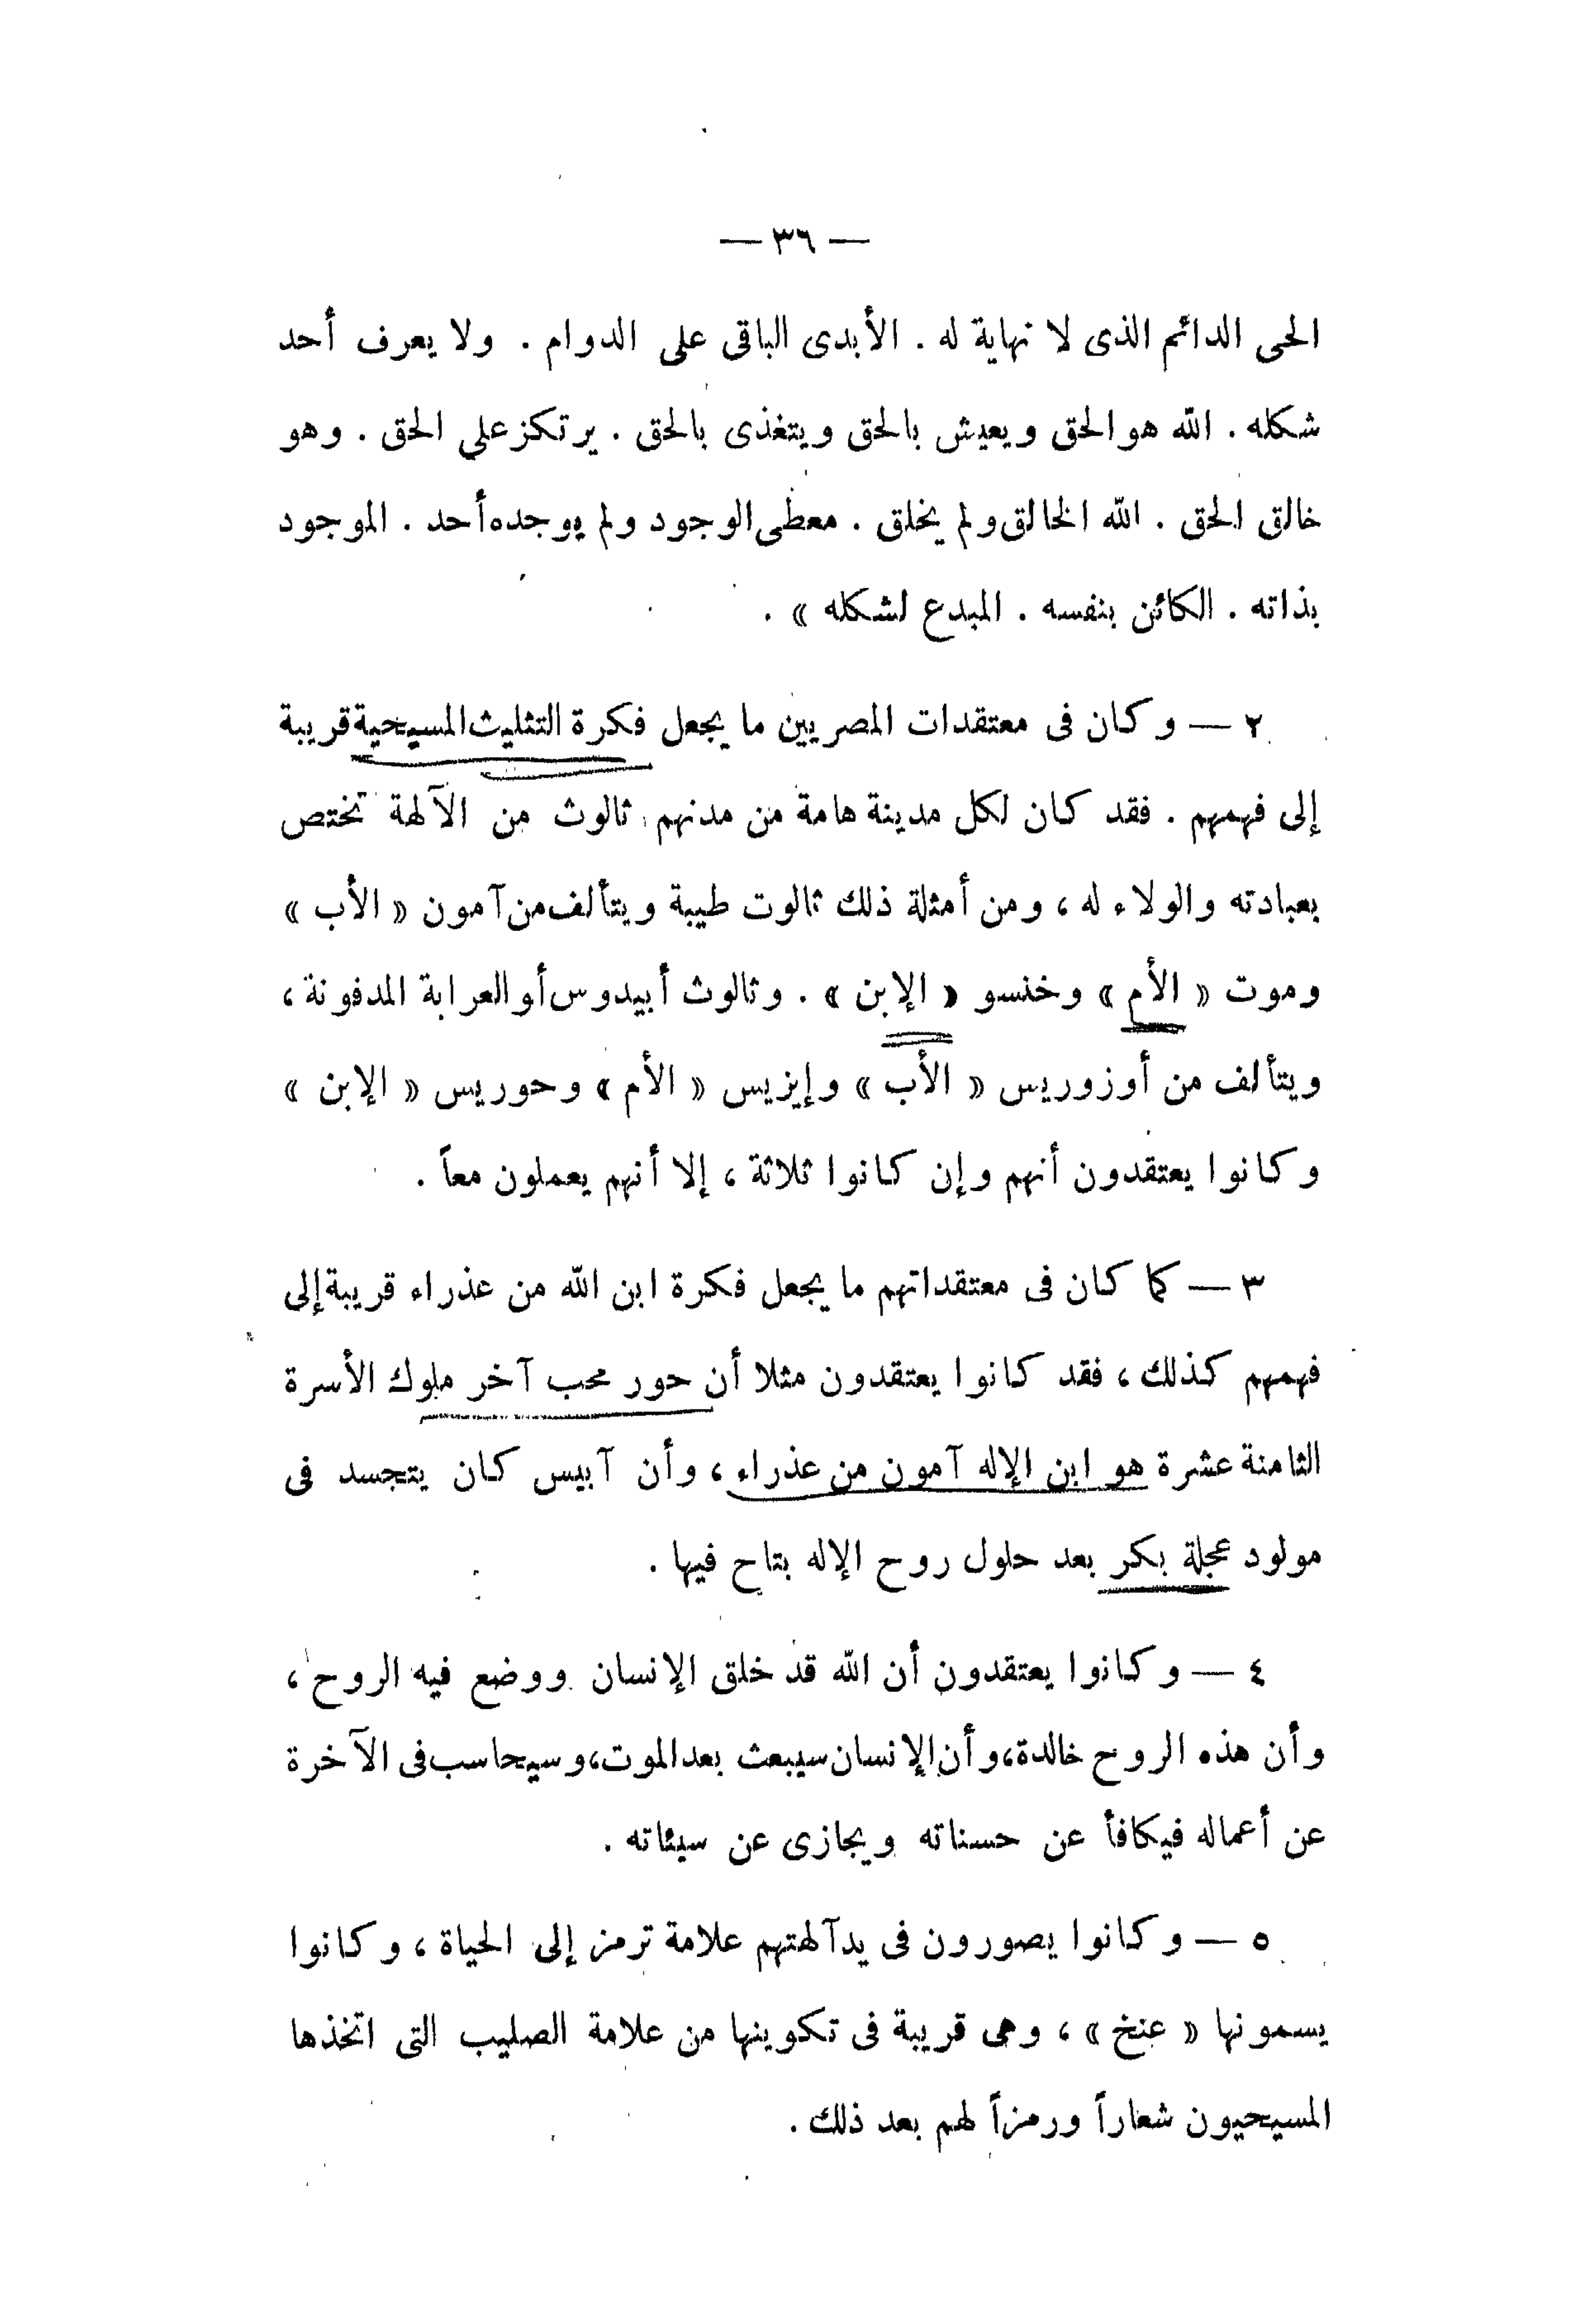 — ٣٦ —
الحى الدائم الذى لا نهاية له . الأبدى الباقى على الدوام . ولا يعرف أحد
شكله . الله هو الحق ويعيش بالحق ويتغذى بالحق . يرتكز على الحق . وهو
خالق الحق . الله الخالق ولم يخلق . معطى الوجود ولم يوجده أحد . الموجود
بذاته . الكائن بنفسه . المبدع لشكله » .
٢ — وكان فى معتقدات المصريين ما يجعل فكرة التثليث المسيحية قريبة
إلى فهمهم . فقد كان لكل مدينة هامة من مدنهم ثالوث من الآلهة تختص
بعبادته والولاء له ، ومن أمثلة ذلك ثالوت طيبة ويتألف من آمون « الأب »
وموت « الأم » وخنسو « الإبن » . وثالوث أبيدوس أو العرابة المدفونة ،
ويتألف من أوزوريس « الأب » وإيزيس « الأم » وحوريس « الإبن »
وكانوا يعتقدون أنهم وإن كانوا ثلاثة ، إلا أنهم يعملون معاً .
٣ — كما كان فى معتقداتهم ما يجعل فكرة ابن الله من عذراء قريبة إلى
فهمهم كذلك ، فقد كانوا يعتقدون مثلا أن حور محب آخر ملوك الأسرة
الثامنة عشرة هو ابن الإله آمون من عذراء ، وأن آبيس كان يتجسد فى
مولود عجلة بكر بعد حلول روح الإله بتاح فيها .
٤ — وكانوا يعتقدون أن الله قد خلق الإنسان ووضع فيه الروح ،
وأن هذه الروح خالدة، وأن الإنسان سيبعث بعد الموت، وسيحاسب فى الآخرة
عن أعماله فيكافأ عن حسناته ويجازى عن سيئاته .
٥ — وكانوا يصورون فى يد آلهتهم علامة ترمز إلى الحياة ، وكانوا
يسمونها « عنخ » ، وهى قريبة فى تكوينها من علامة الصليب التى اتخذها
المسيحيون شعاراً ورمزاً لهم بعد ذلك .